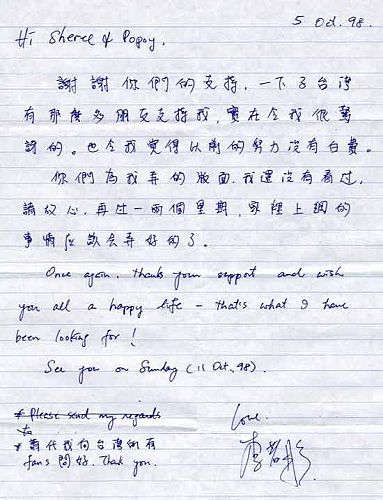 5 Oct. 98.
Hi Sheree & Popoy,
謝謝你們的支持，一下子台灣
有那麼多朋友支持我，實在令我很驚
訝的。也令我覺得以前的努力沒有白費。
你們為我弄的版面，我還沒有看过，
請放心，再过一兩個星期，家裡上網的
事情应該会弄好的了。
Once again, thanks your support and wish
you all a happy life - that's what I have
been looking for!
See you on Sunday (11 Oct., 98).
* Please send my regards
to
* 請代我向台灣所有
fans 問好. Thank you.
Love,
李若彤